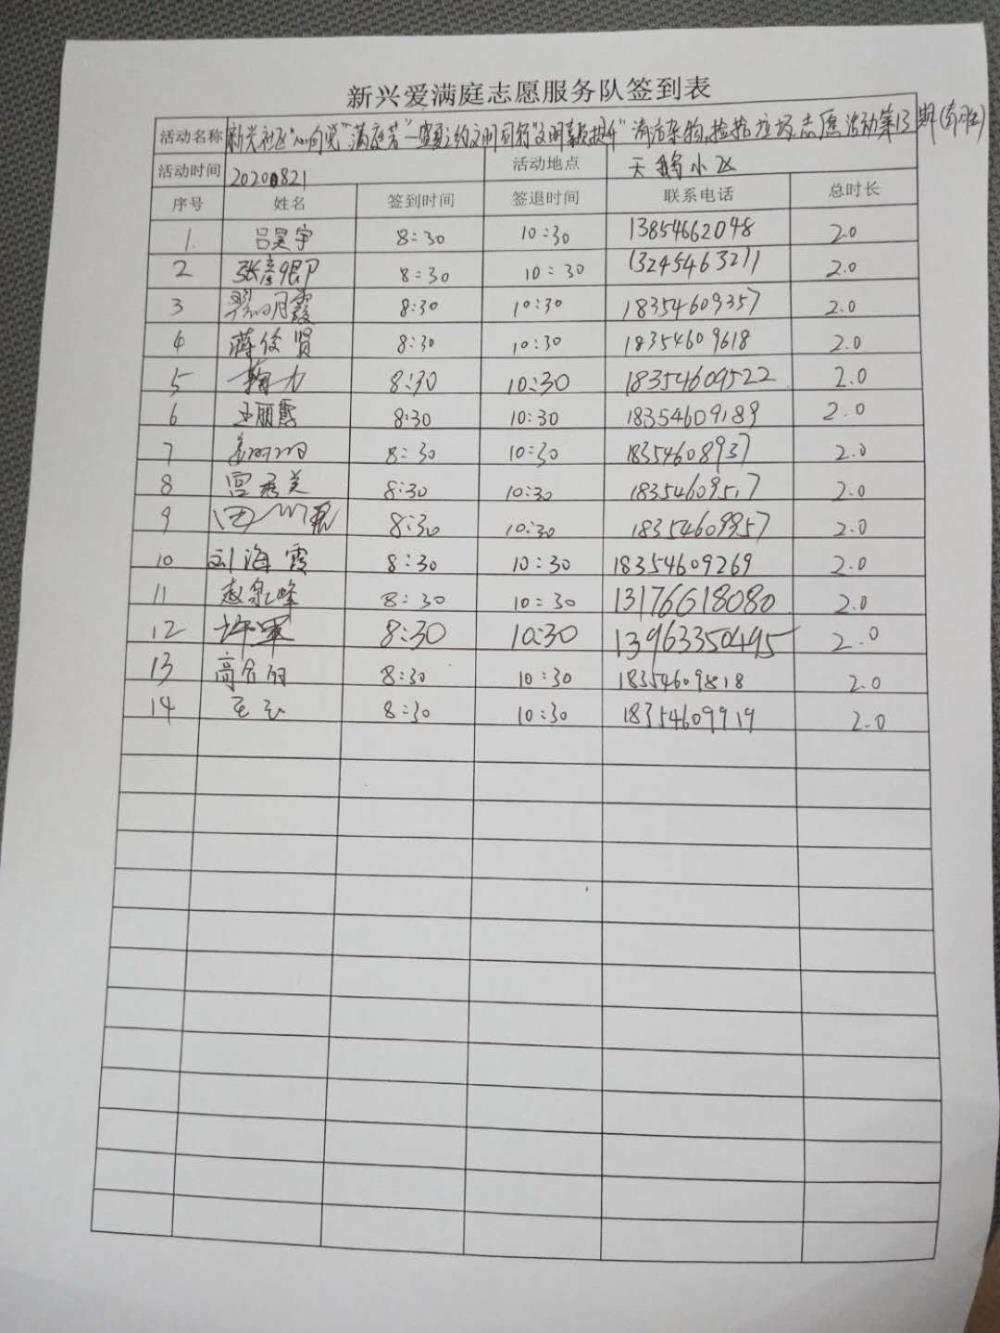 新兴爱满庭志愿服务队签到表
活动名称 新兴社区"心向党"满庭芳"—盛夏之约文明同行"文明 "清洁杂物,捡拾垃圾志愿活动第13期(
活动时间 20200821 活动地点 天鹅小区
序号 姓名 签到时间 签退时间 联系电话 总时长
1. 吕昊宇 8:30 10:30 13854662048 2.0
2 张彦 8:30 10:30 13245463271 2.0
3 明霞 8:30 10:30 18354609357 2.0
4 蒋俊贤 8:30 10:30 18354609618 2.0
5 8:30 10:30 18354609522 2.0
6 王丽霞 8:30 10:30 18354609189 2.0
7 8:30 10:30 18354608937 2.0
8 宫秀美 8:30 10:30 18354609517 2.0
9 田 8:30 10:30 18354609957 2.0
10 刘海霞 8:30 10:30 18354609269 2.0
11 赵泉峰 8:30 10:30 13176618080 2.0
12 许军 8:30 10:30 13963350495 2.0
13 高 8:30 10:30 18354609818 2.0
14 8:30 10:30 18354609919 2.0